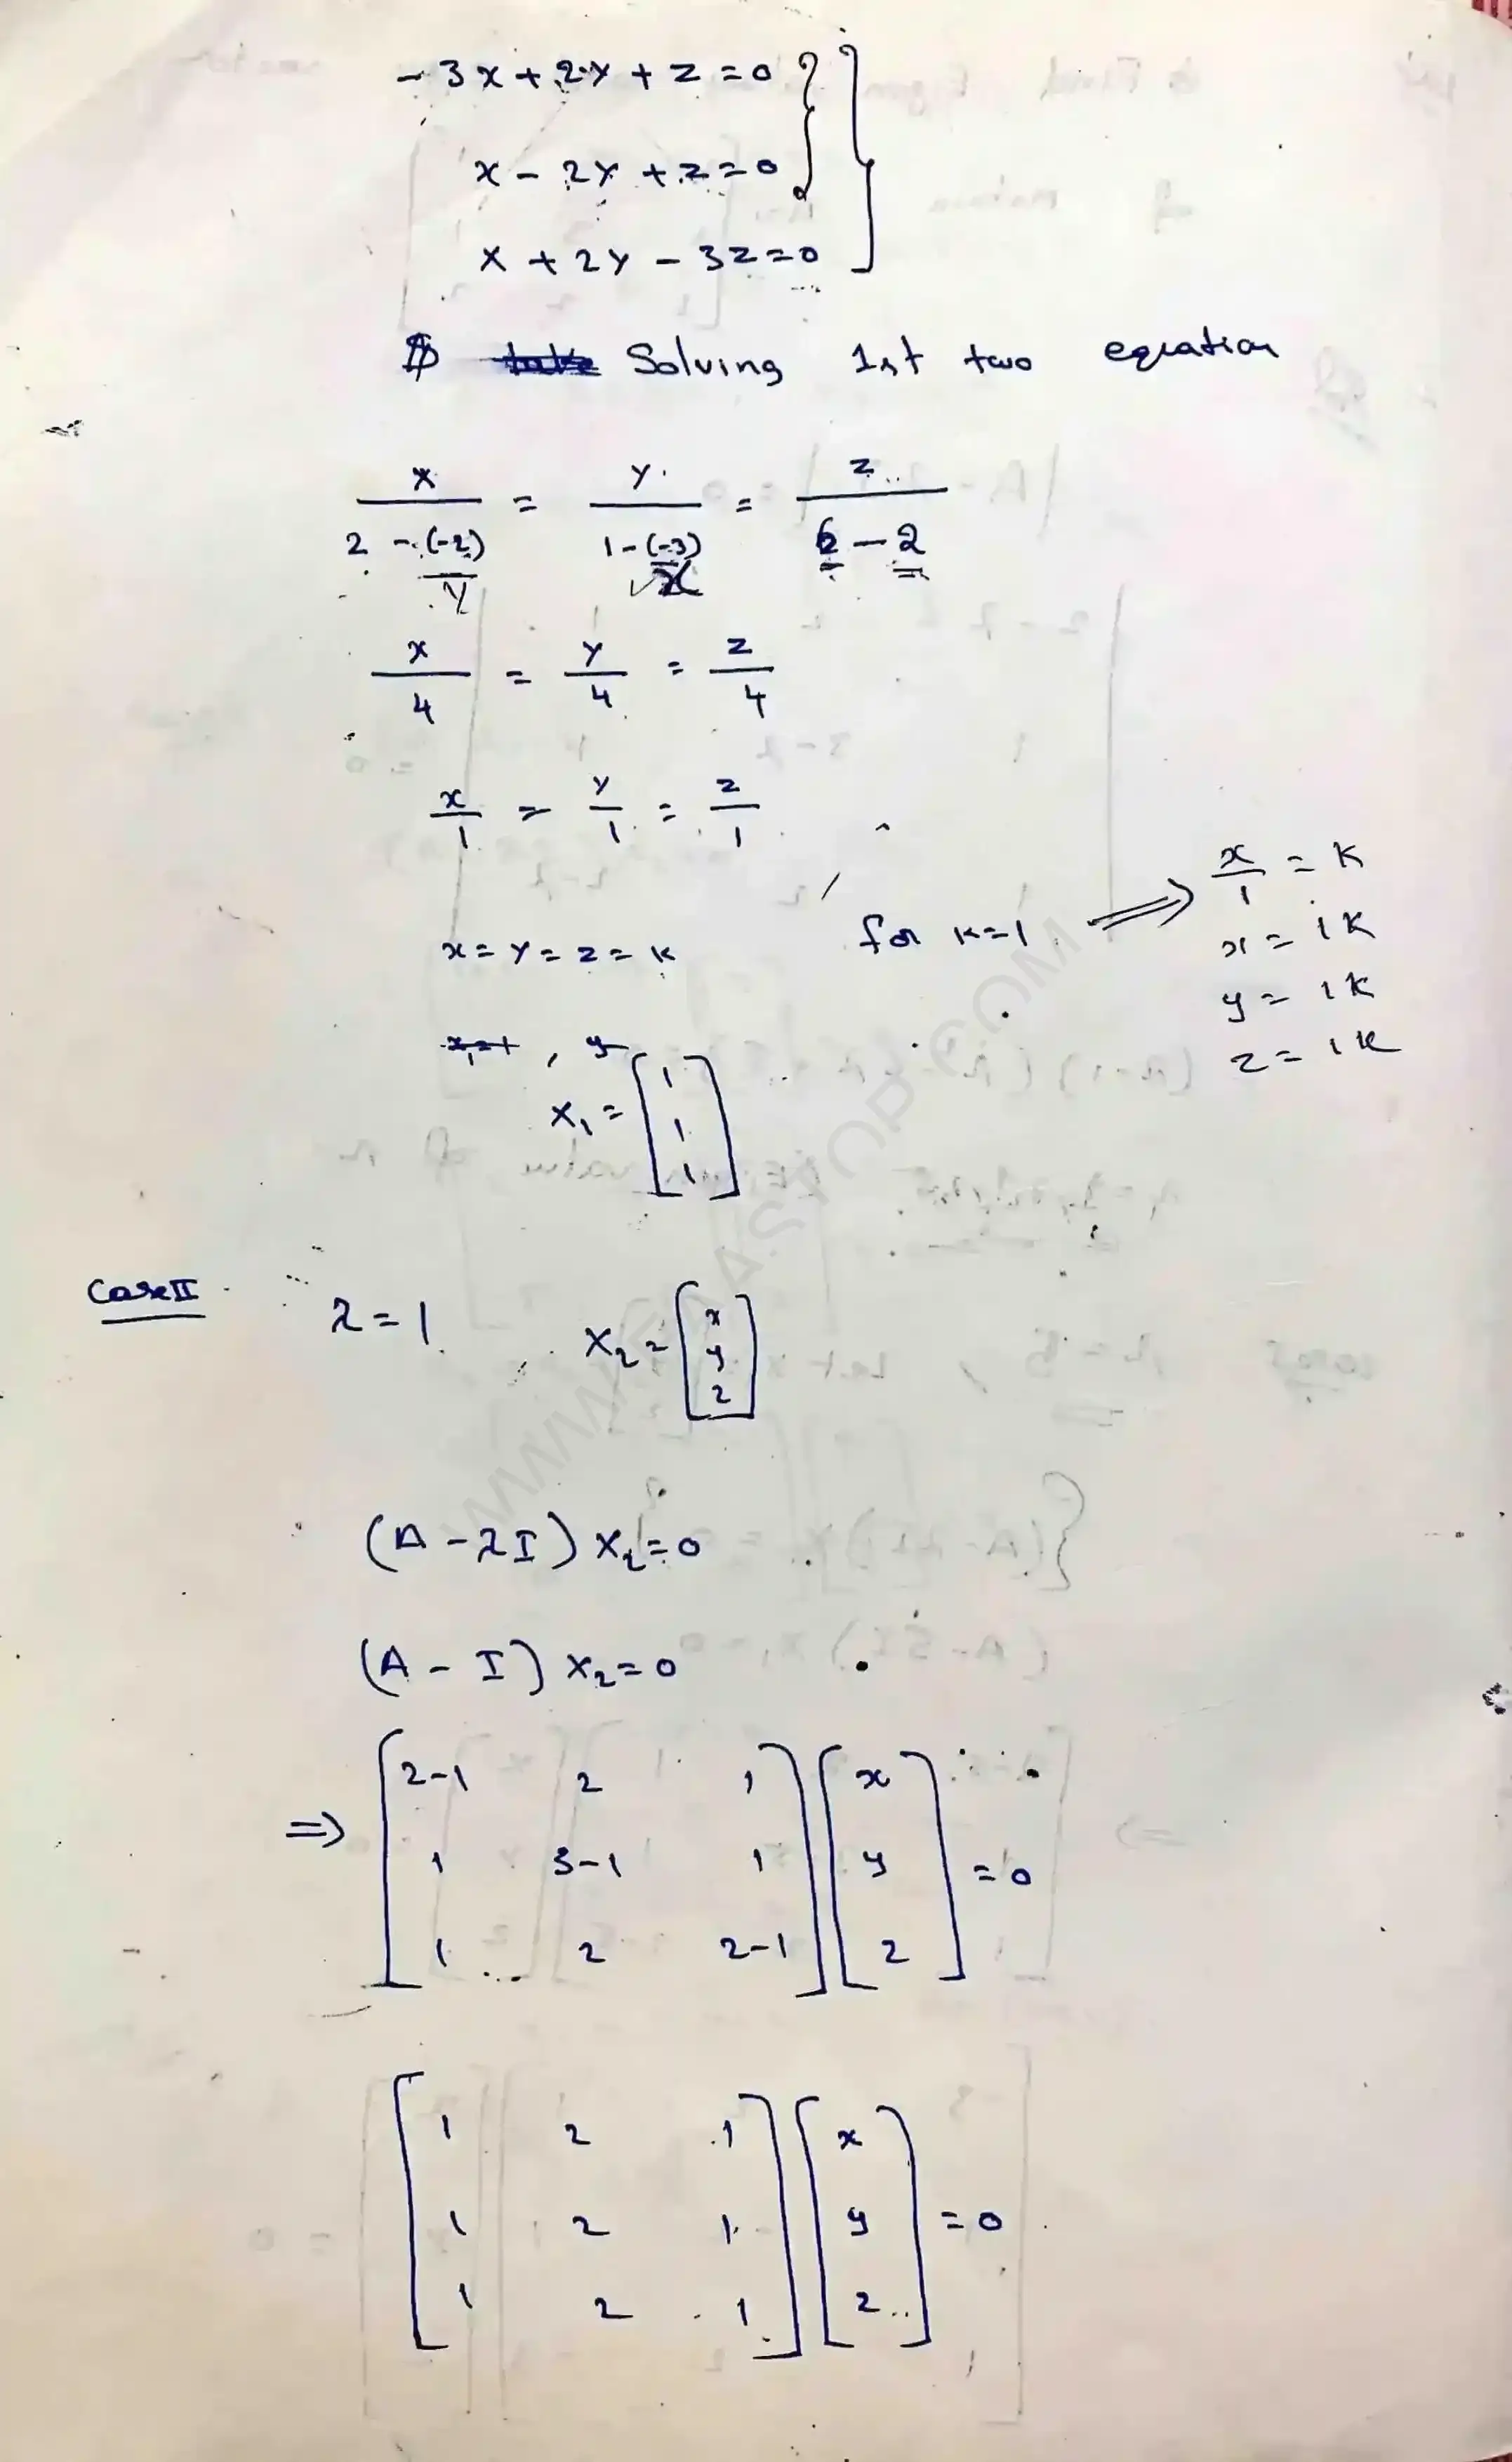 - 3x + 2y + z = 0
x - 2y + z = 0
x + 2y - 3z = 0
Solving 1st two equation
x / (2 - (-2)) = y / (1 - (-3)) = z / (6 - 2)
x/4 = y/4 = z/4
x/1 = y/1 = z/1
x = y = z = k for k=1 ⟹ x/1 = k
x = 1k
y = 1k
z = 1k
x₁ = [1 1 1]
Case II λ = 1 x₂ = [x y z]
(A - λI) x₂ = 0
(A - I) x₂ = 0
⇒ [2-1 2 1] [x]
[1 3-1 1] [y] = 0
[1 2 2-1] [z]
[1 2 1] [x]
[1 2 1] [y] = 0
[1 2 1] [z]